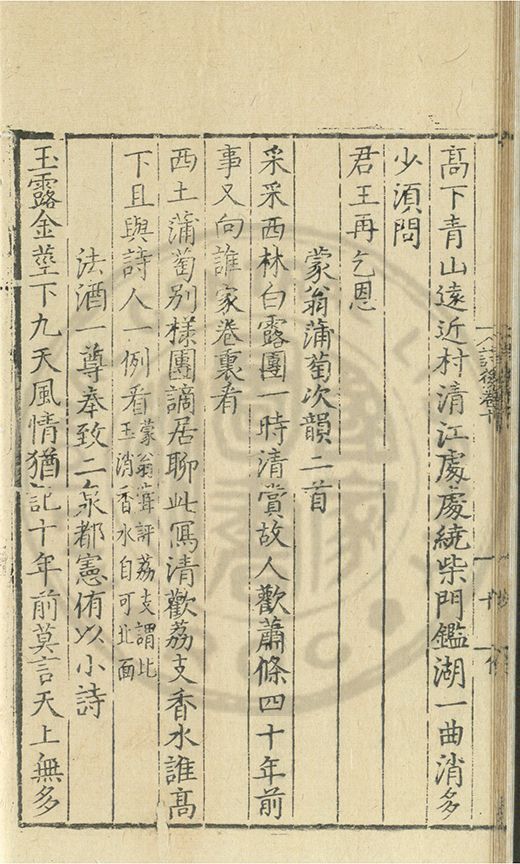 高下青山遠近村清江處處繞柴門鑑湖一曲消多
少須問
君王再乞恩
蒙翁蒲萄次韻二首
采采西林白露團一時清賞故人歡蕭條四十年前
事又向誰家卷裏看
西土蒲萄別樣團謫居聊此寫清歡荔支香水誰高
下且與詩人一例看蒙翁嘗評荔支謂比
玉消香水自可北面
法酒一尊奉致二泉都憲侑以小詩
玉露金莖下九天風情猶記十年前莫言天上無多